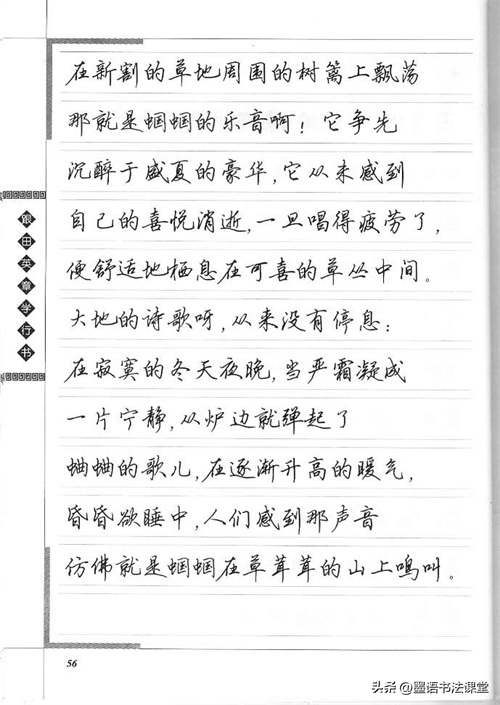 在新割的草地周围的树篱上飘荡
那就是蝈蝈的乐音啊！它争先
沉醉于盛夏的豪华，它从未感到
自己的喜悦消逝，一旦唱得疲劳了，
便舒适地栖息在可喜的草丛中间。
大地的诗歌呀，从来没有停息：
在寂寞的冬天夜晚，当严霜凝成
一片宁静，从炉边就弹起了
蛐蛐的歌儿，在逐渐升高的暖气，
昏昏欲睡中，人们感到那声音
仿佛就是蝈蝈在草茸茸的山上鸣叫。
跟田英章学行书
56
头条 @墨语书法课堂